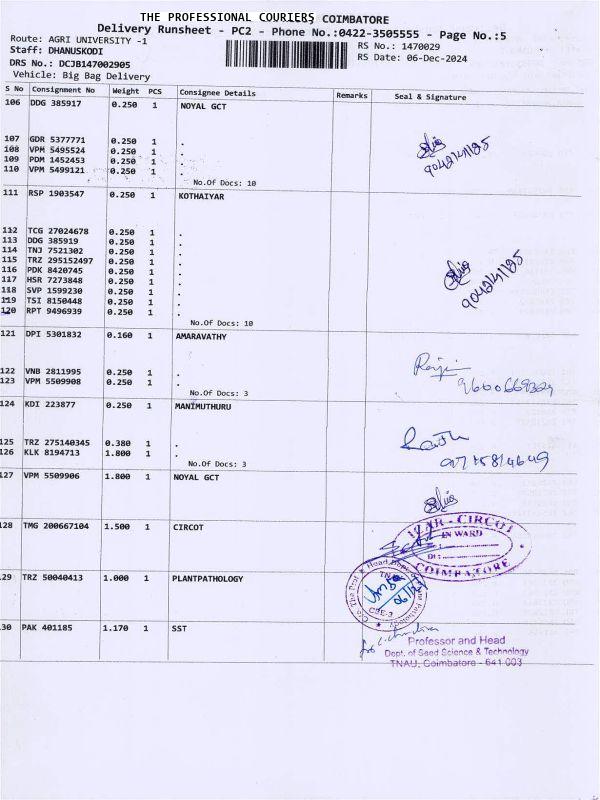 THE PROFESSIONAL COURIERS COIMBATORE
Delivery Runsheet - PC2 - Phone No.:0422-3505555 - Page No.:5
Route: AGRI UNIVERSITY -1
RS No.: 1470029
Staff: DHANUSKODI
RS Date: 06-Dec-2024
DRS No.: DCJB147002905
Vehicle: Big Bag Delivery
S No Consignment No Weight PCS Consignee Details Remarks Seal & Signature
106 DDG 385917 0.250 1 NOYAL GCT
107 GDR 5377771 0.250 1 .
108 VPM 5495524 0.250 1 .
109 PDM 1452453 0.250 1 .
110 VPM 5499121 0.250 1 .
No.Of Docs: 10
111 RSP 1903547 0.250 1 KOTHAIYAR
112 TCG 27024678 0.250 1 .
113 DDG 385919 0.250 1 .
114 TNJ 7521302 0.250 1 .
115 TRZ 295152497 0.250 1 .
116 PDK 8420745 0.250 1 .
117 HSR 7273848 0.250 1 .
118 SVP 1599230 0.250 1 .
119 TSI 8150448 0.250 1 .
120 RPT 9496939 0.250 1 .
No.Of Docs: 10
121 DPI 5301832 0.160 1 AMARAVATHY
122 VNB 2811995 0.250 1 .
123 VPM 5509908 0.250 1 .
No.Of Docs: 3
124 KDI 223877 0.250 1 MANIMUTHURU
125 TRZ 275140345 0.380 1 .
126 KLK 8194713 1.800 1 .
No.Of Docs: 3
127 VPM 5509906 1.800 1 NOYAL GCT
128 TMG 200667104 1.500 1 CIRCOT
ICAR - CIRCOT
IN WARD
COIMBATORE
29 TRZ 50040413 1.000 1 PLANTPATHOLOGY
30 PAK 401185 1.170 1 SST
Professor and Head
Dept. of Seed Science & Technology
TNAU, Coimbatore - 641 003